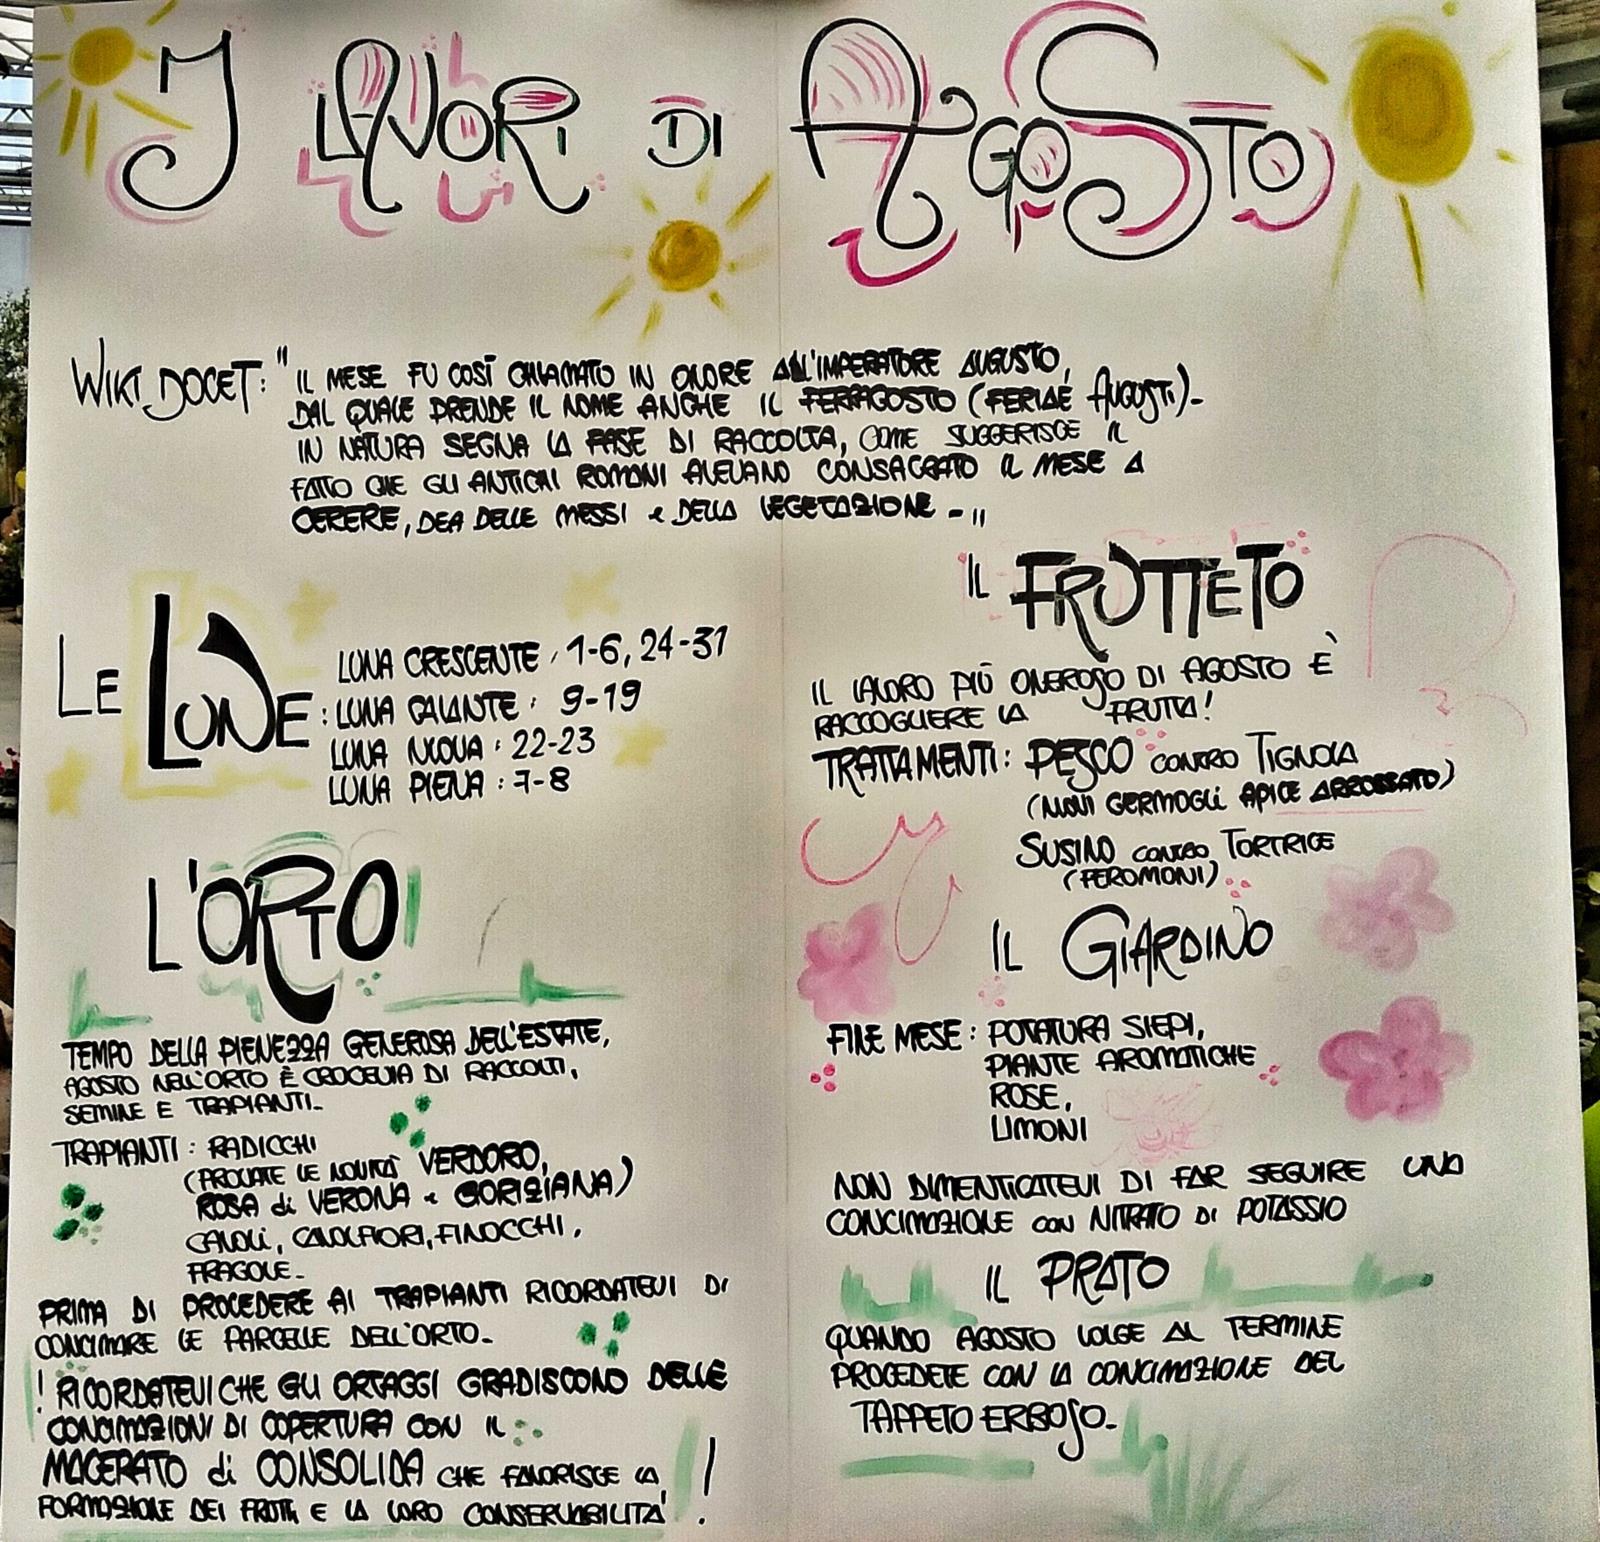 I LAVORI DI AGOSTO
WIKI DOCET: "IL MESE FU COSÌ CHIAMATO IN ONORE ALL'IMPERATORE AUGUSTO,
DAL QUALE PRENDE IL NOME ANCHE IL FERRAGOSTO (FERIAE AUGUSTI)-
IN NATURA SEGNA LA FASE DI RACCOLTA, COME SUGGERISCE IL
FATTO CHE GLI ANTICHI ROMANI AVEVANO CONSACRATO IL MESE A
CERERE, DEA DELLE MESSI e DELLA VEGETAZIONE -"
LE LUNE:
LUNA CRESCENTE: 1-6, 24-31
LUNA CALANTE: 9-19
LUNA NUOVA: 22-23
LUNA PIENA: 7-8
L'ORTO
TEMPO DELLA PIENEZZA GENEROSA DELL'ESTATE,
AGOSTO NELL'ORTO È CROCEVIA DI RACCOLTI,
SEMINE E TRAPIANTI-
TRAPIANTI: RADICCHI
(PROVATE LE NOVITÀ VERDORO,
ROSA di VERONA e GORIZIANA)
CAVOLI, CAVOLFIORI, FINOCCHI,
FRAGOLE-
PRIMA DI PROCEDERE AI TRAPIANTI RICORDATEVI DI
CONCIMARE LE PARCELLE DELL'ORTO-
! RICORDATEVI CHE GLI ORTAGGI GRADISCONO DELLE
CONCIMAZIONI DI COPERTURA CON IL
MACERATO di CONSOLIDA CHE FAVORISCE LA
FORMAZIONE DEI FRUTTI E LA LORO CONSERVABILITÀ. !
IL FRUTTETO
IL LAVORO PIÙ ONEROSO DI AGOSTO È
RACCOGLIERE LA FRUTTA!
TRATTAMENTI: PESCO CONTRO TIGNOLA
(NUOVI GERMOGLI APICE ARROSSATO)
SUSINO CONTRO TORTRICE
(FEROMONI)
IL GIARDINO
FINE MESE: POTATURA SIEPI,
PIANTE AROMATICHE
ROSE,
LIMONI
NON DIMENTICATEVI DI FAR SEGUIRE UNA
CONCIMAZIONE CON NITRATO DI POTASSIO
IL PRATO
QUANDO AGOSTO VOLGE AL TERMINE
PROCEDETE CON LA CONCIMAZIONE DEL
TAPPETO ERBOSO-